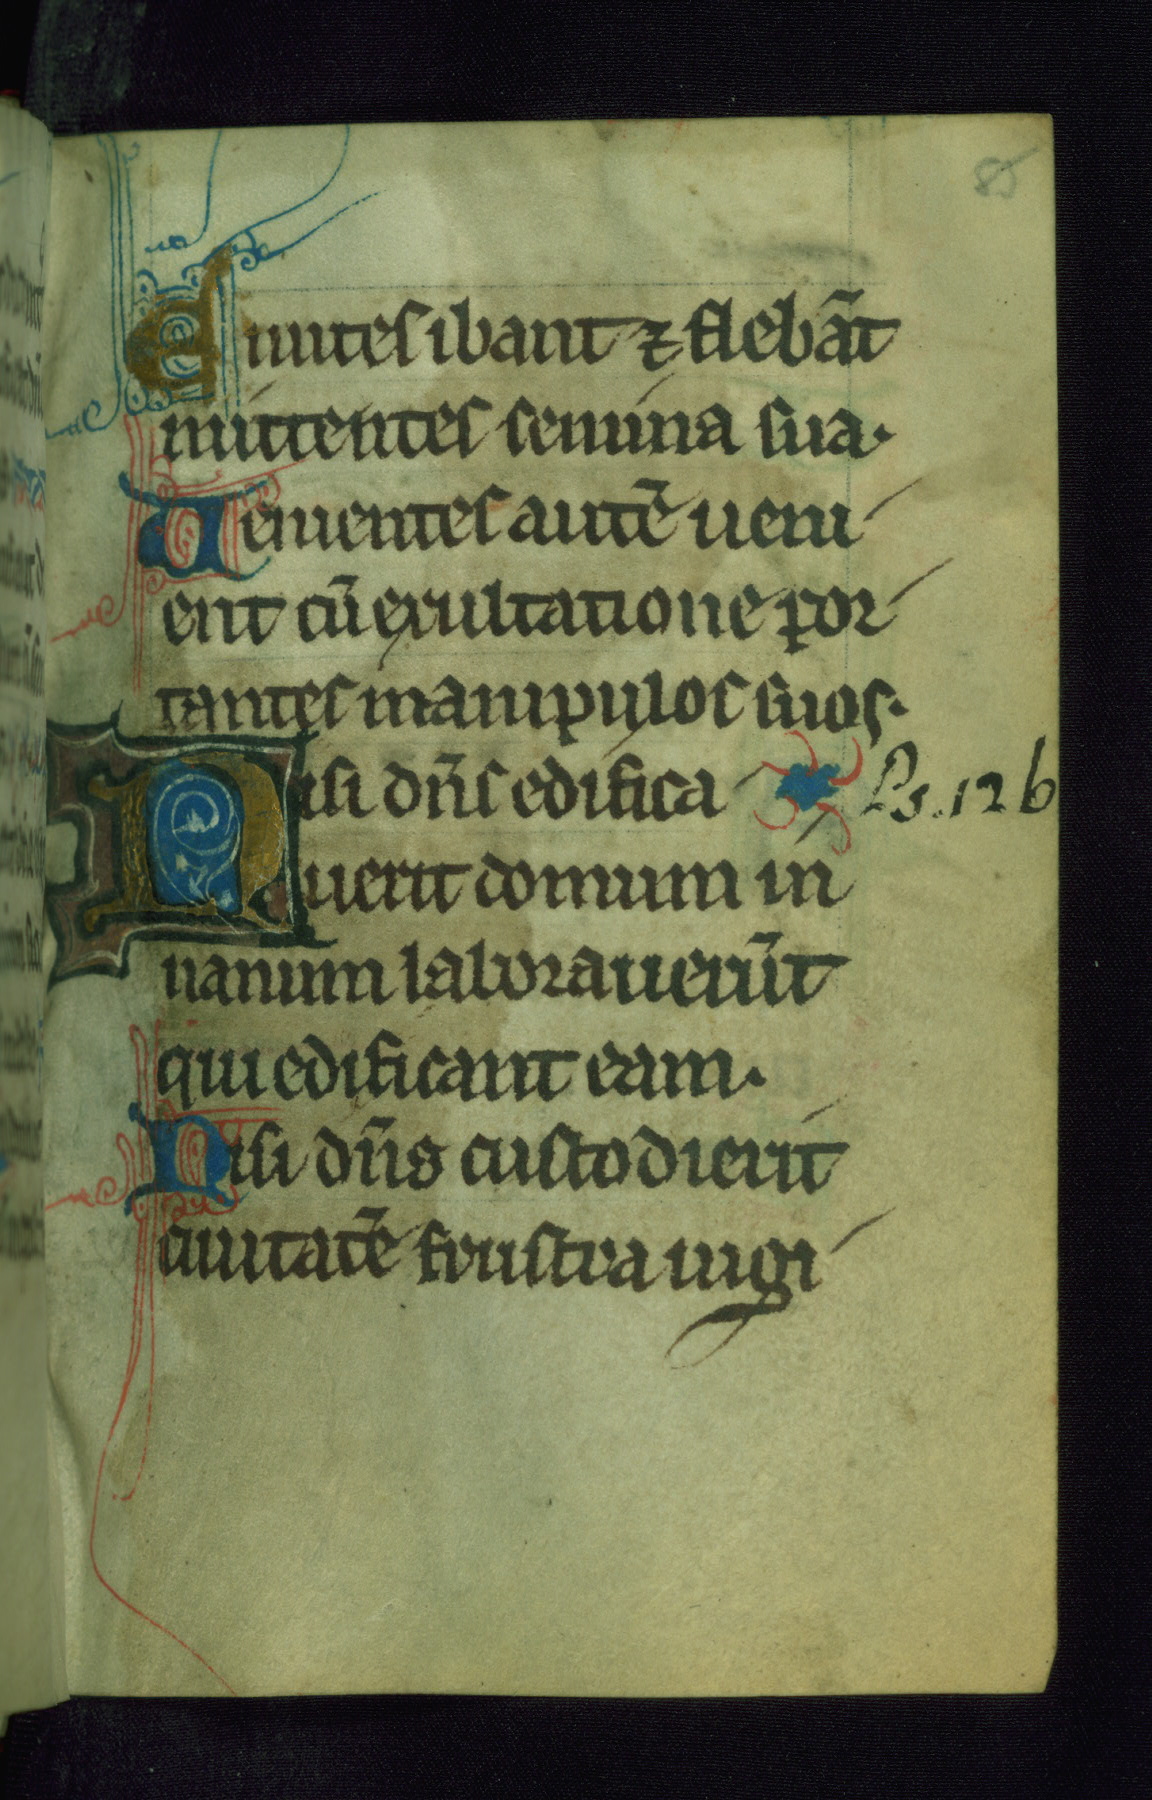 85
Euntes ibant ⁊ flebãt
mittentes semina sua.
Uenientes autẽ ueni
ent cũ exultatione por
tantes manipulos suos.
Nisi dñs edifica
Ps. 126
uerit domum in
uanum laborauerũt
qui edificant eam.
Nisi dñs custodierit
ciuitatẽ frustra uigi